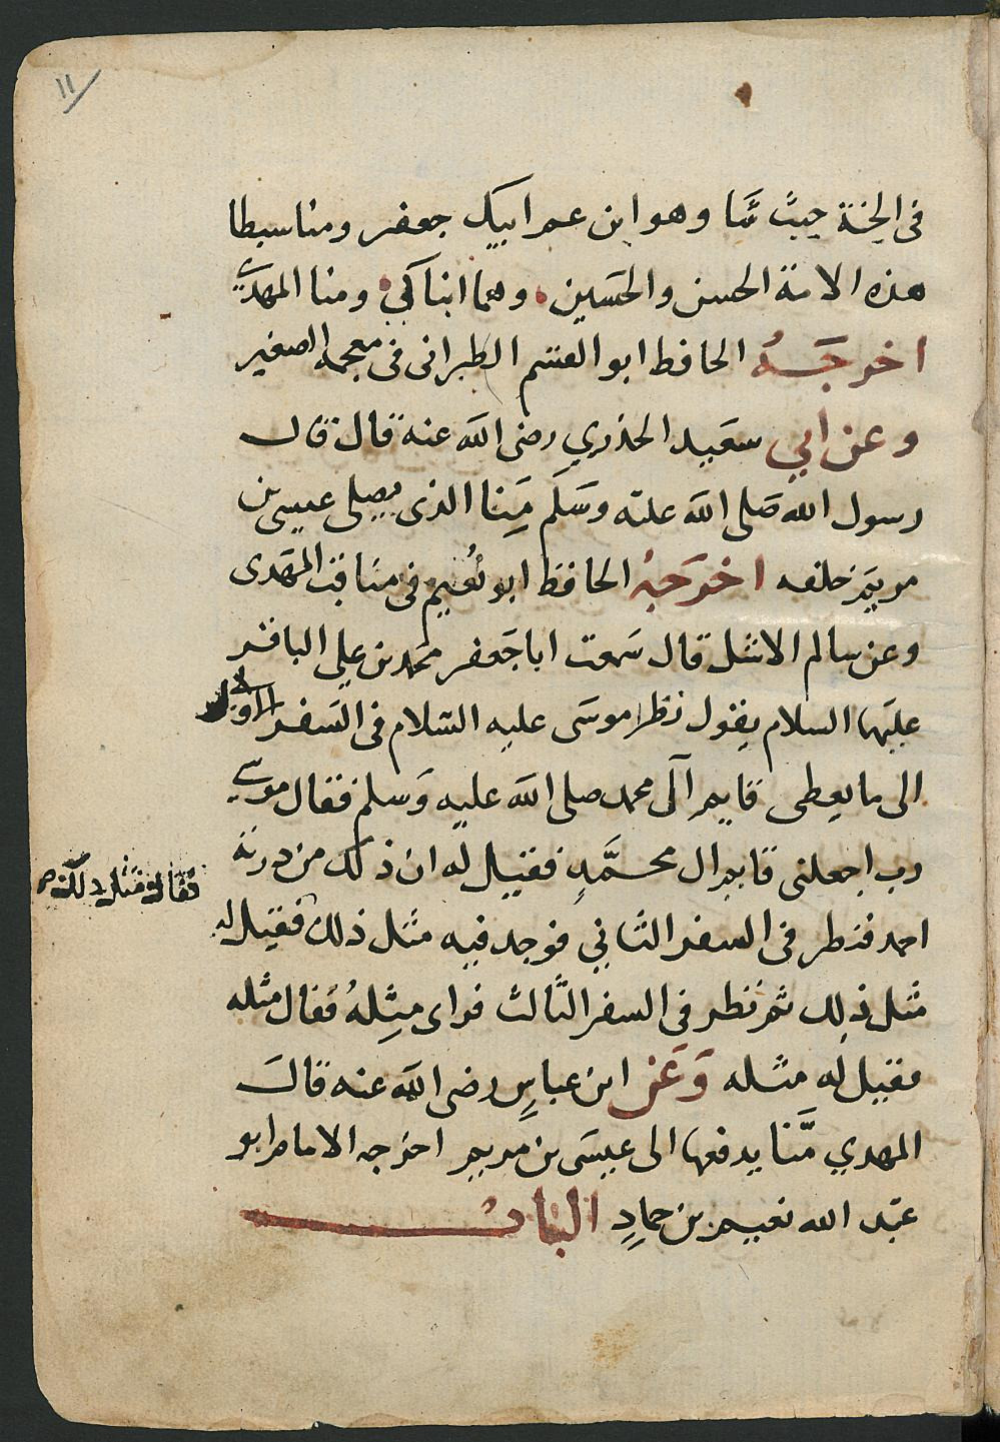 ١١
فى الجنة حيث شا وهو ابن عم ابيك جعفر ومنا سبطا
هذه الامة الحسن والحسين وهما ابناكي ومنا المهدي
اخرجه الحافظ ابو القسم الطبرانى فى معجمه الصغير
وعن ابي سعيد الخدري رضى الله عنه قال قال
رسول الله صلى الله عليه وسلم منا الذى يصلى عيسى بن
مريم خلفه اخرجه الحافظ ابو نعيم فى مناقب المهدى
وعن سالم الاشل قال سمعت ابا جعفر محمد بن علي الباقر
عليهما السلام يقول نظر موسى عليه السلام فى السفر الاول
الى ما يعطى قايم آل محمد صلى الله عليه وسلم فقال موسى
رب اجعلنى قايم ال محمد فقيل له ان ذلك من ذرية
فقال له مثل ذلك صح
احمد فنظر فى السفر الثاني فوجد فيه مثل ذلك فقيل له
مثل ذلك ثم نظر فى السفر الثالث فراى مثله فقال مثله
فقيل له مثله وعن ابن عباس رضى الله عنه قال
المهدي منا يدفعها الى عيسى بن مريم اخرجه الامام ابو
عبد الله نعيم بن حماد الباب